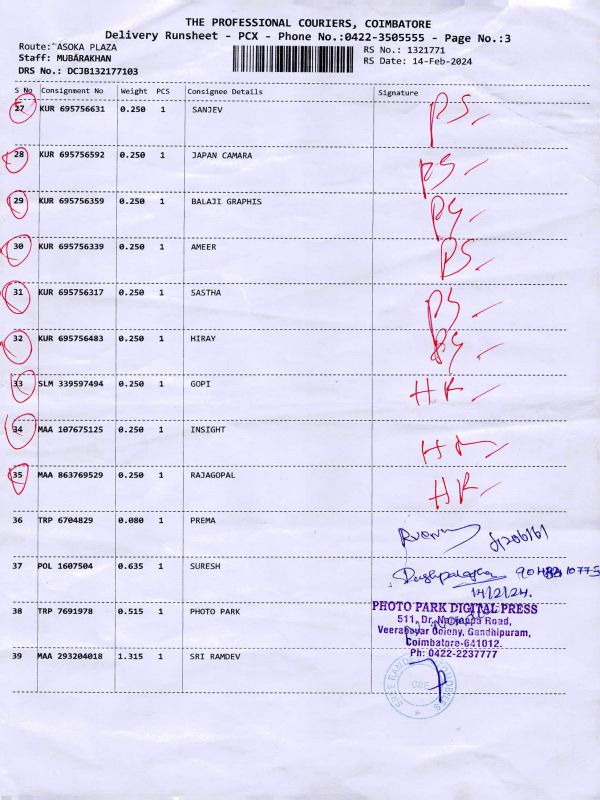 THE PROFESSIONAL COURIERS, COIMBATORE
Delivery Runsheet - PCX - Phone No.:0422-3505555 - Page No.:3
Route: ASOKA PLAZA
Staff: MUBARAKHAN
DRS No.: DCJB132177103
RS No.: 1321771
RS Date: 14-Feb-2024
S No Consignment No Weight PCS Consignee Details Signature
27 KUR 695756631 0.250 1 SANJEV PS
28 KUR 695756592 0.250 1 JAPAN CAMARA PS
29 KUR 695756359 0.250 1 BALAJI GRAPHIS PS
30 KUR 695756339 0.250 1 AMEER PS
31 KUR 695756317 0.250 1 SASTHA PS
32 KUR 695756483 0.250 1 HIRAY PS
33 SLM 339597494 0.250 1 GOPI HR
34 MAA 107675125 0.250 1 INSIGHT
35 MAA 863769529 0.250 1 RAJAGOPAL HR
36 TRP 6704829 0.080 1 PREMA
37 POL 1607504 0.635 1 SURESH
14/2/24.
38 TRP 7691978 0.515 1 PHOTO PARK
PHOTO PARK DIGITAL PRESS
511, Dr. Nanjappa Road,
Veerabavar Coleny, Gandhipuram,
Coimbatore-641012.
Ph: 0422-2237777
39 MAA 293204018 1.315 1 SRI RAMDEV
CBE